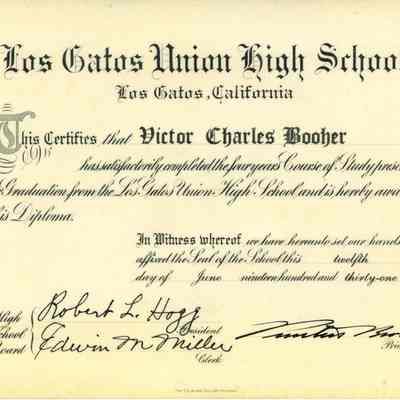 Los Gatos Union High Schoo
Los Gatos, California
This Certifies that Victor Charles Booher
has satisfactorily completed the four years Course of Study prese
Graduation from the Los Gatos Union High School and is hereby awa
is Diploma.
In Witness whereof we have hereunto set our hands
affixed the Seal of the School this twelfth
day of June nineteen hundred and thirty-one
High
School
Board
Robert L. Hogg
President
Edwin M Miller
Clerk
Prin